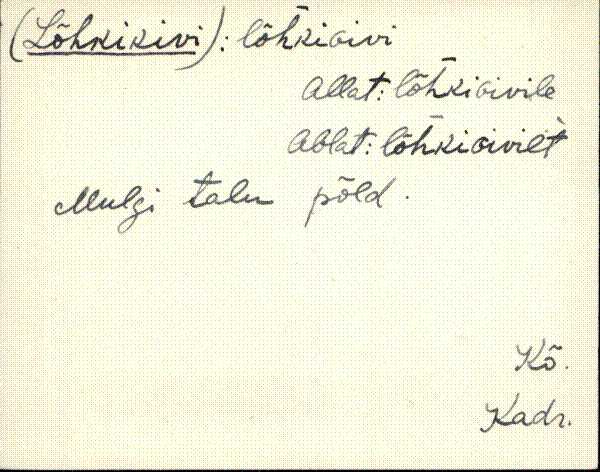 (Lõhkikivi): lõh̄kiɢivi
Allat: lõh̄kiɢivile
Ablat: lõh̄kiɢivilt̀
Mulgi talu põld.
Kõ.
Kadr.